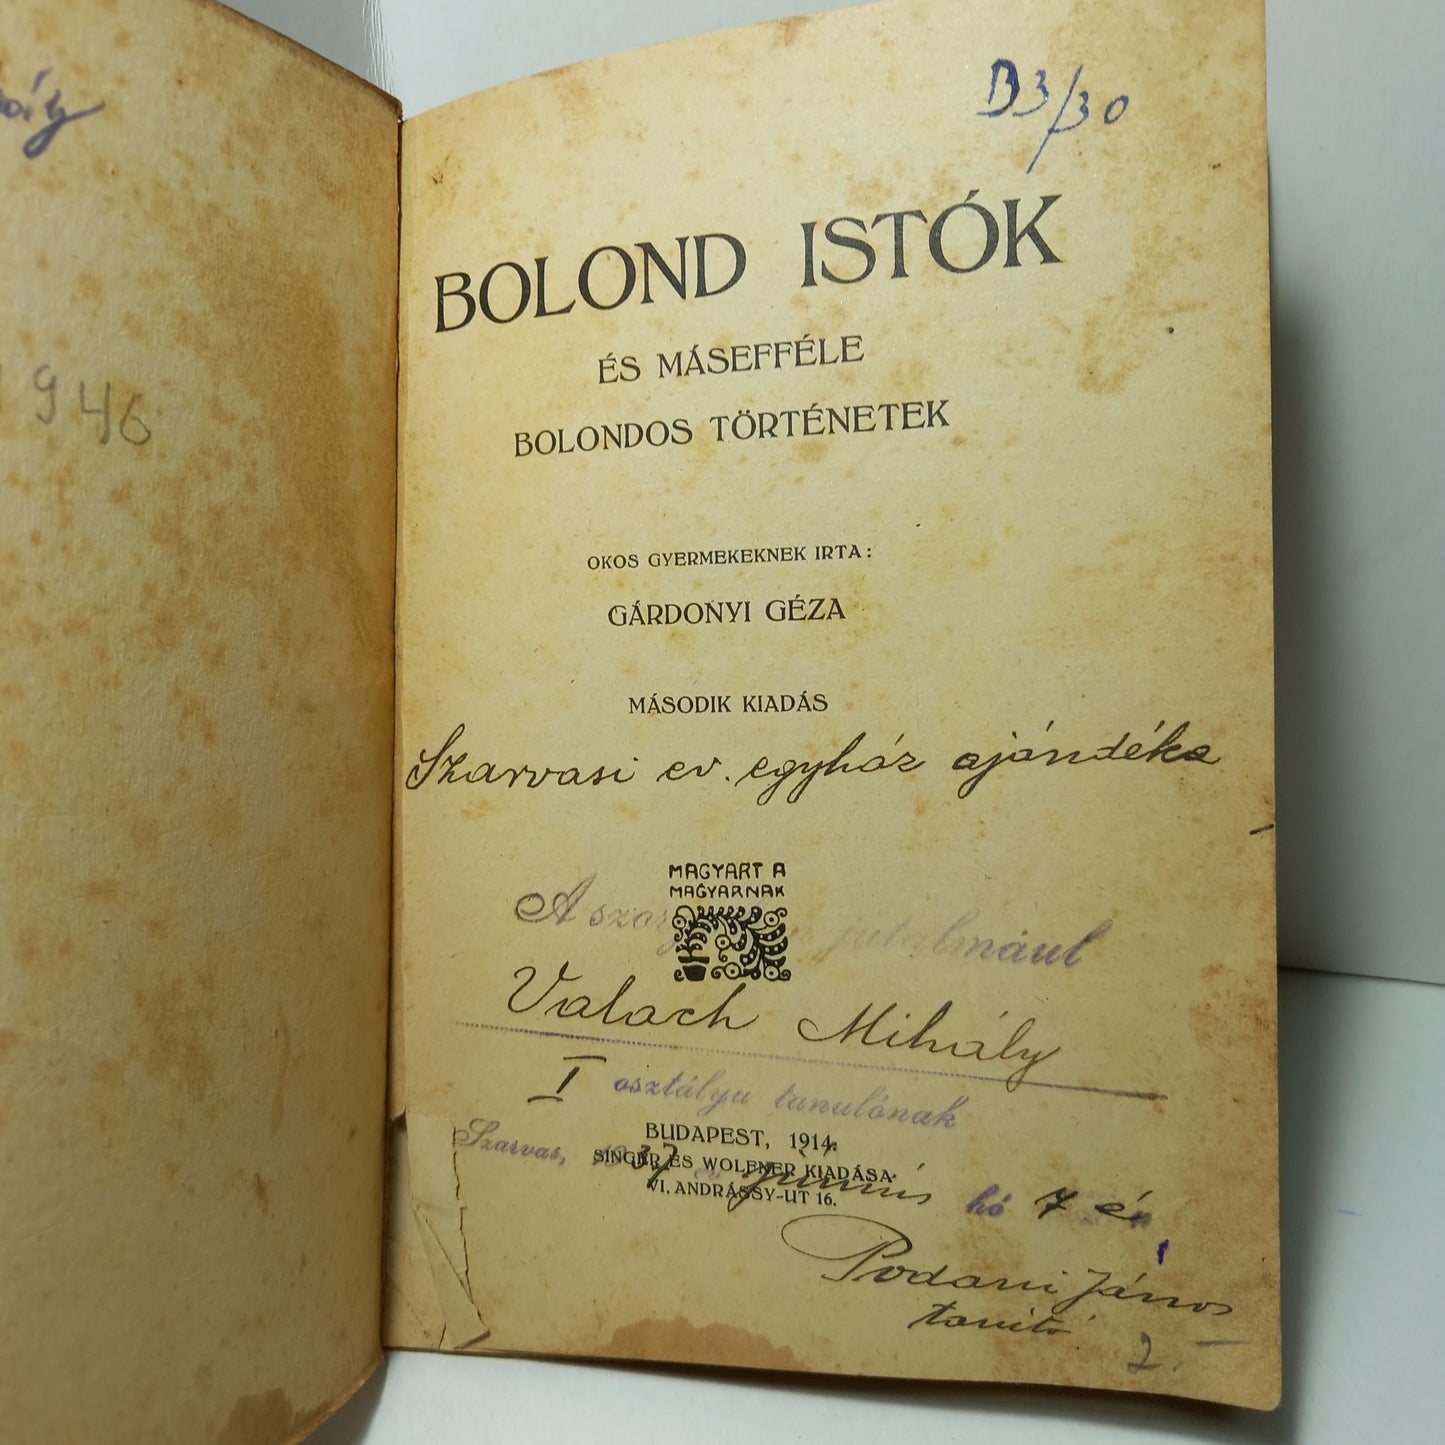 1946
B3/30
BOLOND ISTÓK
ÉS MÁSEFFÉLE
BOLONDOS TÖRTÉNETEK
OKOS GYERMEKEKNEK IRTA:
GÁRDONYI GÉZA
MÁSODIK KIADÁS
Szarvasi ev. egyház ajándéka
MAGYART A
MAGYARNAK
A jutalmául
Valach Mihály
I osztályu tanulónak
BUDAPEST, 1914.
SINGER ÉS WOLFNER KIADÁSA
VI. ANDRÁSSY-UT 16.
Szarvas, 1937 június hó 7 én
Podani János
tanító
2.-